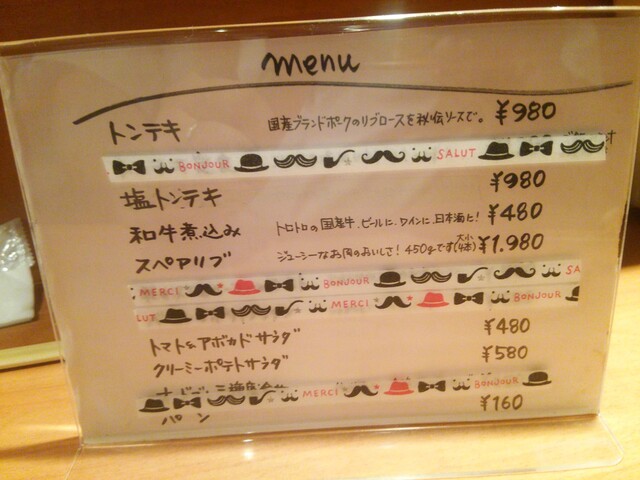 menu
トンテキ 国産ブランドポークのリブロースを秘伝ソースで。 ¥980
BONJOUR SALUT
塩トンテキ ¥980
和牛煮込み トロトロの国産牛、ビールに、ワインに、日本酒に! ¥480
スペアリブ ジューシーなお肉のおいしさ! 450gです(大小4本) ¥1.980
MERCI BONJOUR SA
LUT MERCI BONJOUR
トマト&アボカドサラダ ¥480
クリーミーポテトサラダ ¥580
MERCI BONJOUR
パン ¥160